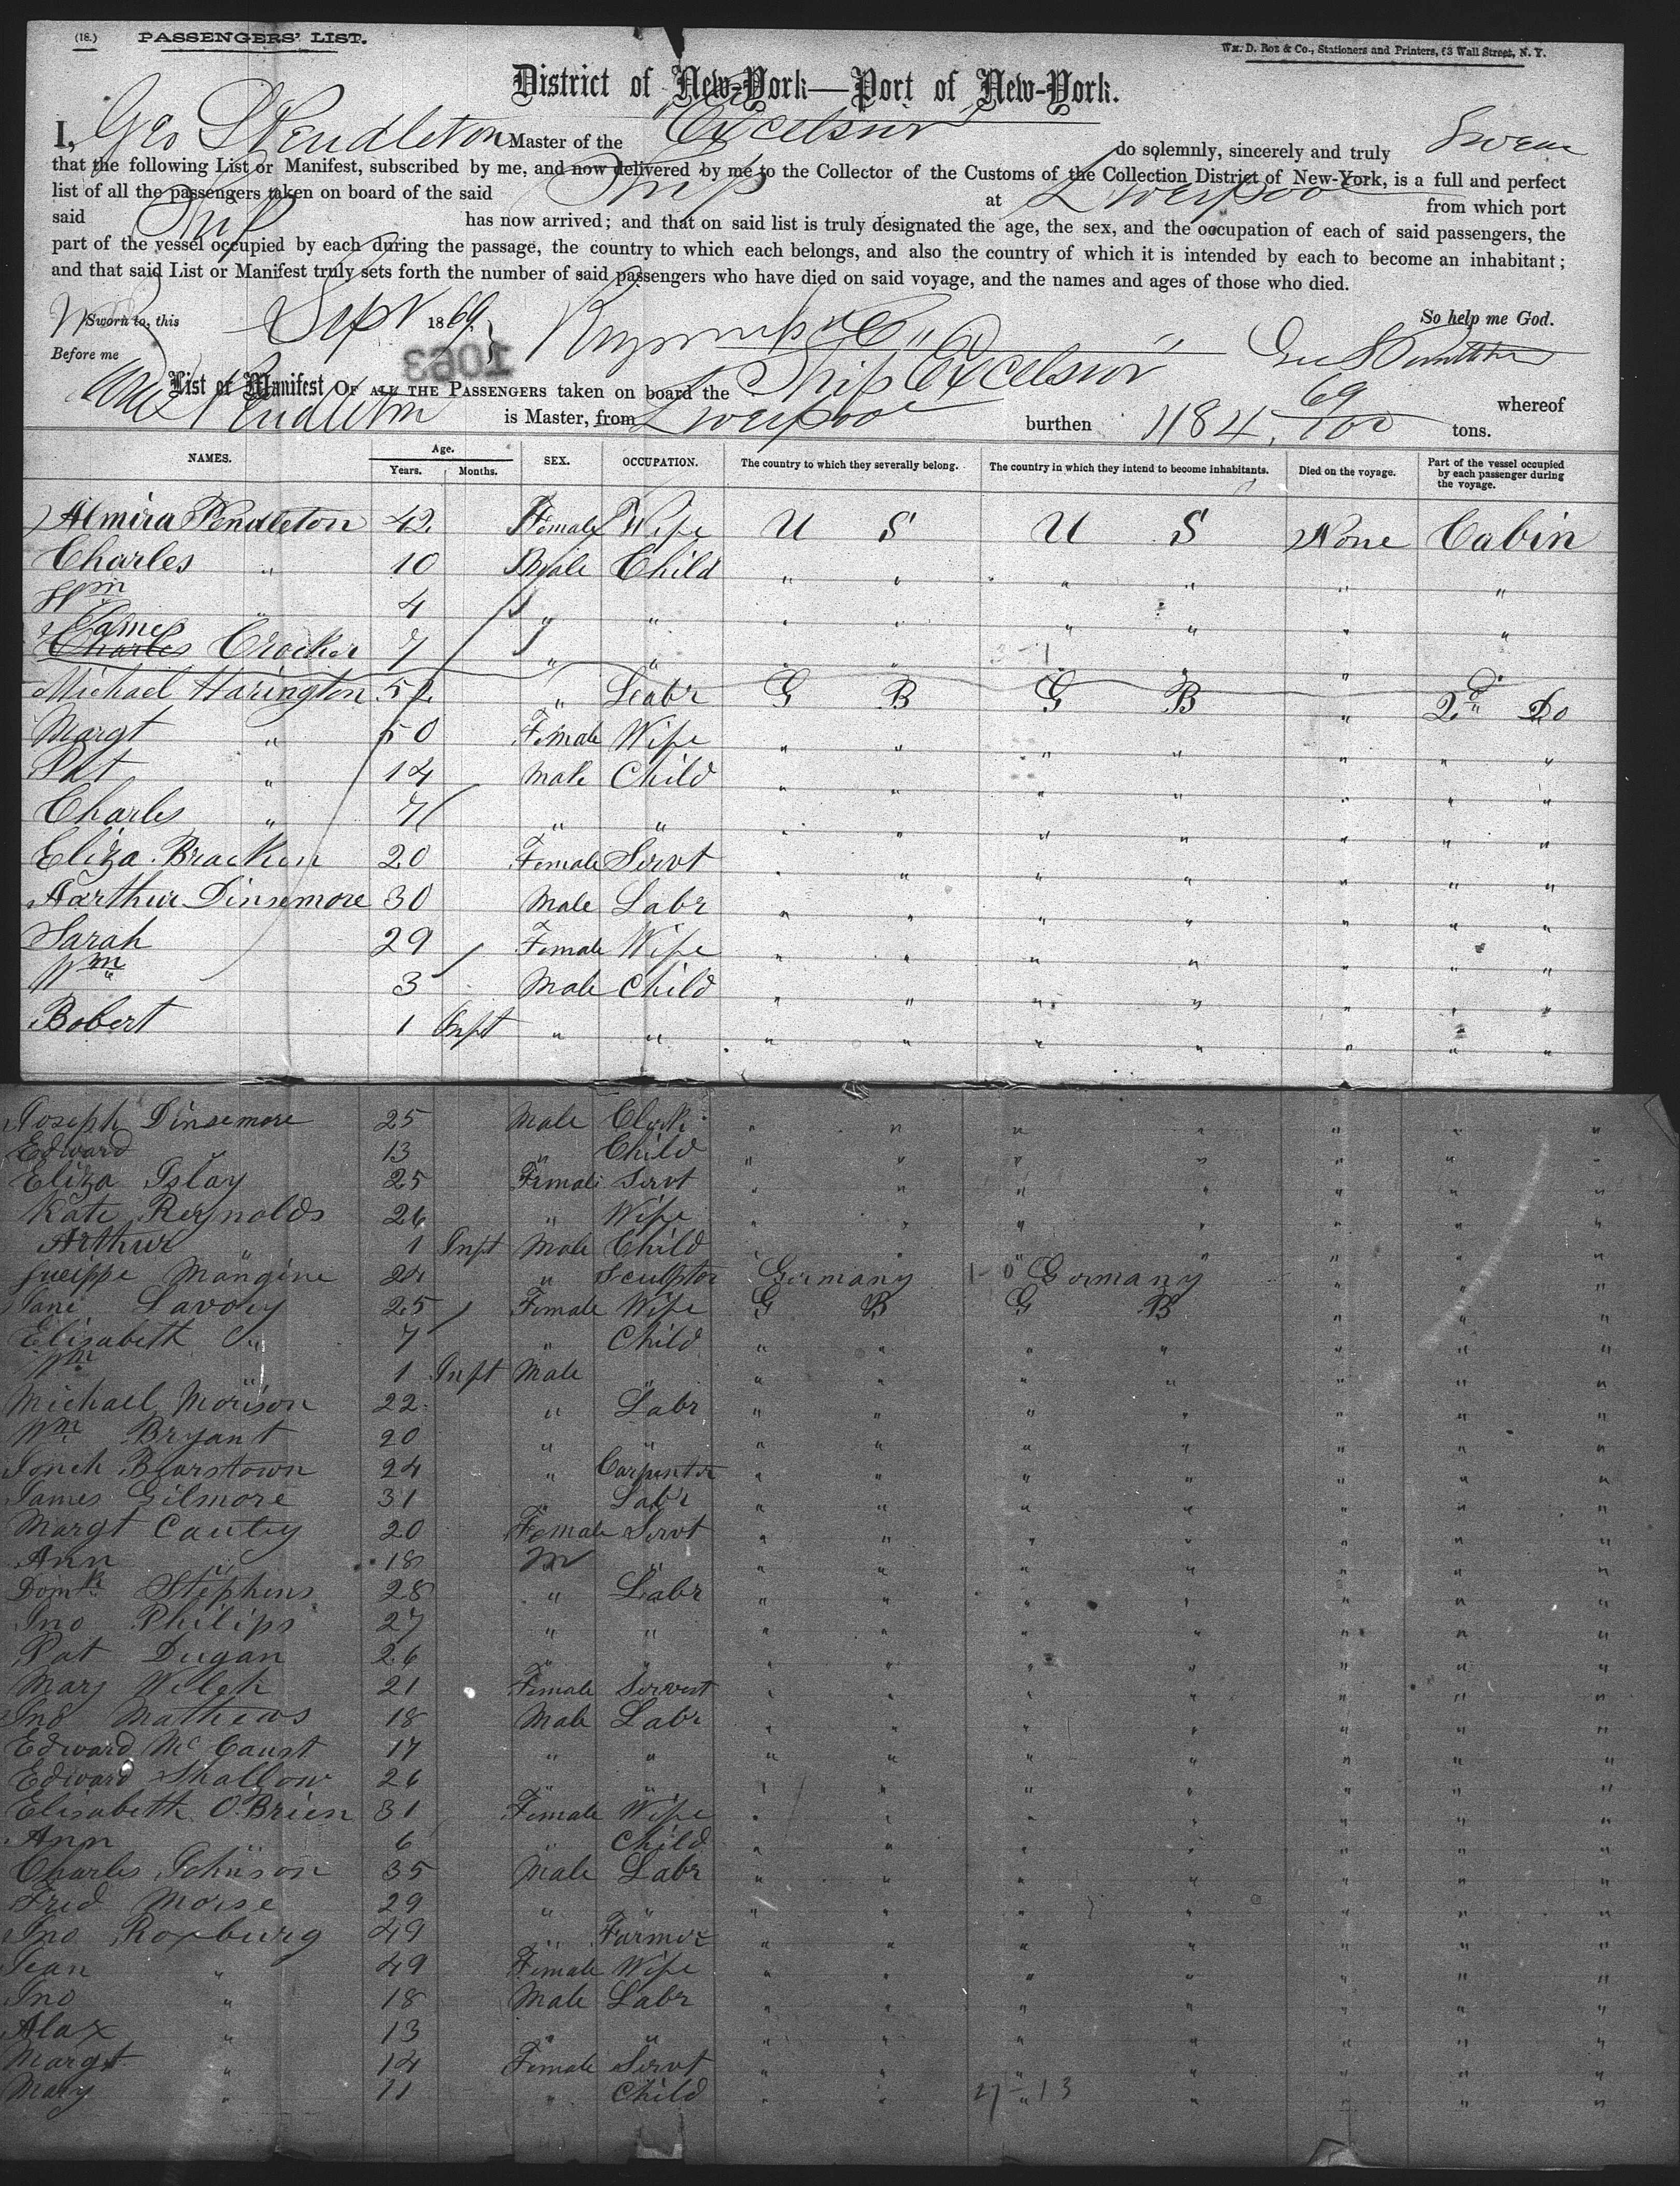 (18.) PASSENGERS' LIST. Wm. D. Roe & Co., Stationers and Printers, 63 Wall Street, N. Y.
District of New-York—Port of New-York.
I, Geo S Pendleton Master of the Excelsior do solemnly, sincerely and truly Swear
that the following List or Manifest, subscribed by me, and now delivered by me to the Collector of the Customs of the Collection District of New-York, is a full and perfect
list of all the passengers taken on board of the said Ship at Liverpool from which port
said Ship has now arrived; and that on said list is truly designated the age, the sex, and the occupation of each of said passengers, the
part of the vessel occupied by each during the passage, the country to which each belongs, and also the country of which it is intended by each to become an inhabitant;
and that said List or Manifest truly sets forth the number of said passengers who have died on said voyage, and the names and ages of those who died.
Sworn to, this Sept 1869 So help me God.
Before me 1063
List or Manifest OF ALL THE PASSENGERS taken on board the Ship Excelsior whereof
Pendleton is Master, from Liverpool burthen 1184 69/100 tons.
NAMES. Age. Years. Months. SEX. OCCUPATION. The country to which they severally belong. The country in which they intend to become inhabitants. Died on the voyage. Part of the vessel occupied by each passenger during the voyage.
Almira Pendleton 42 Female Wife U S U S None Cabin
Charles " 10 Male Child " " " " " "
Wm " 4 " " " " " " " "
James Charles Crocker 7 " " " " " " "
Michael Harington 52 " Labr G B G B " 2d Do
Margt " 50 Female Wife " " " " " " "
Pat " 14 Male Child " " " " " " "
Charles " 7 " " " " " " " " "
Eliza Bracken 20 Female Servt " " " " " "
Aarthur Dinsemore 30 Male Labr " " " " " " "
Sarah 29 Female Wife " " " " " " "
Wm 3 Male Child " " " " " " "
Bobert 1 Inft " " " " " " " " "
Joseph Dinsemore 25 Male Clerk " " " " " " "
Edward 13 " Child " " " " " " "
Eliza Islay 25 Female Servt " " " " " " "
Kate Reynolds 26 " Wife " " " " " " "
Arthur " 1 Inft Male Child " " " " " " "
Gueippe Mangine 24 " Sculptor Germany 1-0 Germany " " "
Jane Lavoey 25 Female Wife G B G B " " "
Elisabeth " 7 " Child " " " " " " "
Wm " 1 Inft Male " " " " " " " "
Michael Morison 22 " Labr " " " " " " "
Wm Bryant 20 " " " " " " " " "
Bearstown 24 " Carpenter " " " " " " "
James Gilmore 31 " Labr " " " " " " "
Margt Cautey 20 Female Servt " " " " " " "
Ann " 18 M " " " " " " " "
Domk Stephens 28 " Labr " " " " " " "
Jno Philips 27 " " " " " " " " "
Pat Dugan 26 " " " " " " " " "
Mary Welch 21 Female Servent " " " " " " "
Jno Mathews 18 Male Labr " " " " " " "
Edward Mc Caust 17 " " " " " " " " "
Edward Shallow 26 " " " " " " " " "
Elisabeth O.Brien 31 Female Wife " " " " " " "
Ann 6 " Child " " " " " " "
Charles Johnson 35 Male Labr " " " " " " "
Fred Morse 29 " " " " " " " " "
Jno Roxburg 49 " Farmer " " " " " " "
Jean " 49 Female Wife " " " " " " "
Jno " 18 Male Labr " " " " " " "
Alax " 13 " " " " " " " " "
Margt " 14 Female Servt " " " " " " "
Mary " 11 " Child " " 27-13 " " " "